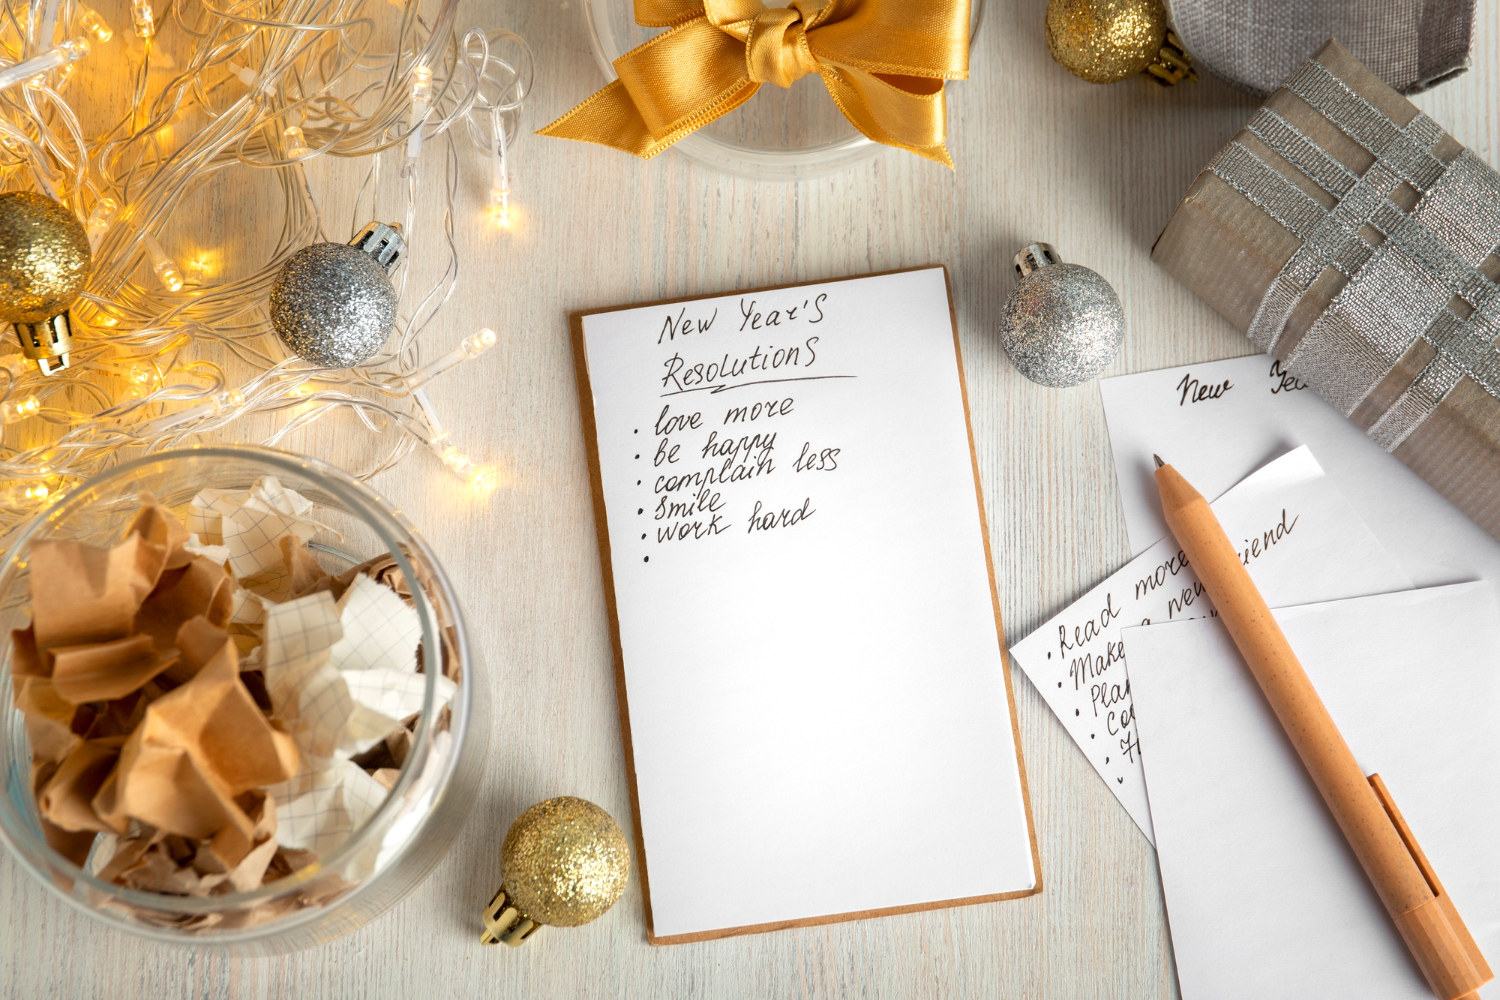 New Year's
Resolutions
• love more
• be happy
• complain less
• smile
• work hard
•
New
• Read more
• Make a new